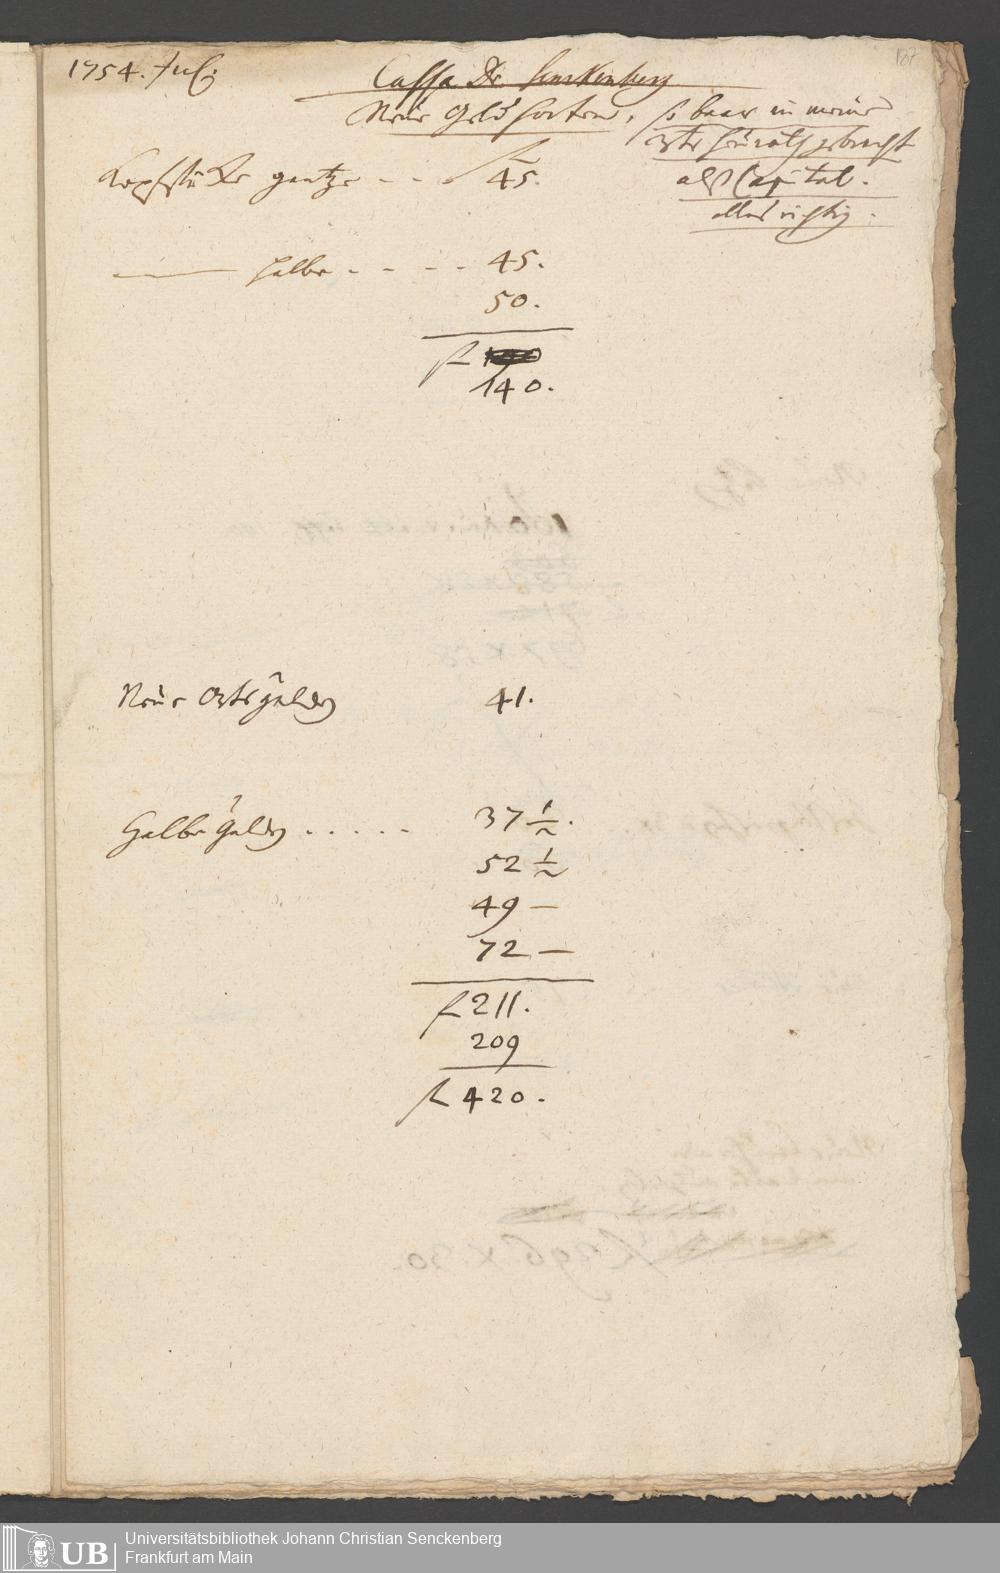 107
1754. Jul:
Cassa Dr. Senckenberg
Neue Geld sorten, so baar in meine
3te Heürath gebracht
als Capital.
alles richtig.
Kopfstücke gantze - - . f 45.
—— halbe - - - - 45.
50.
f
140.
Neue Ortsgulden 41.
Halbe Gulden . . . . . 37 1/2.
52 1/2
49 —
72 —
f 211.
209
f 420.
UB Universitätsbibliothek Johann Christian Senckenberg
Frankfurt am Main